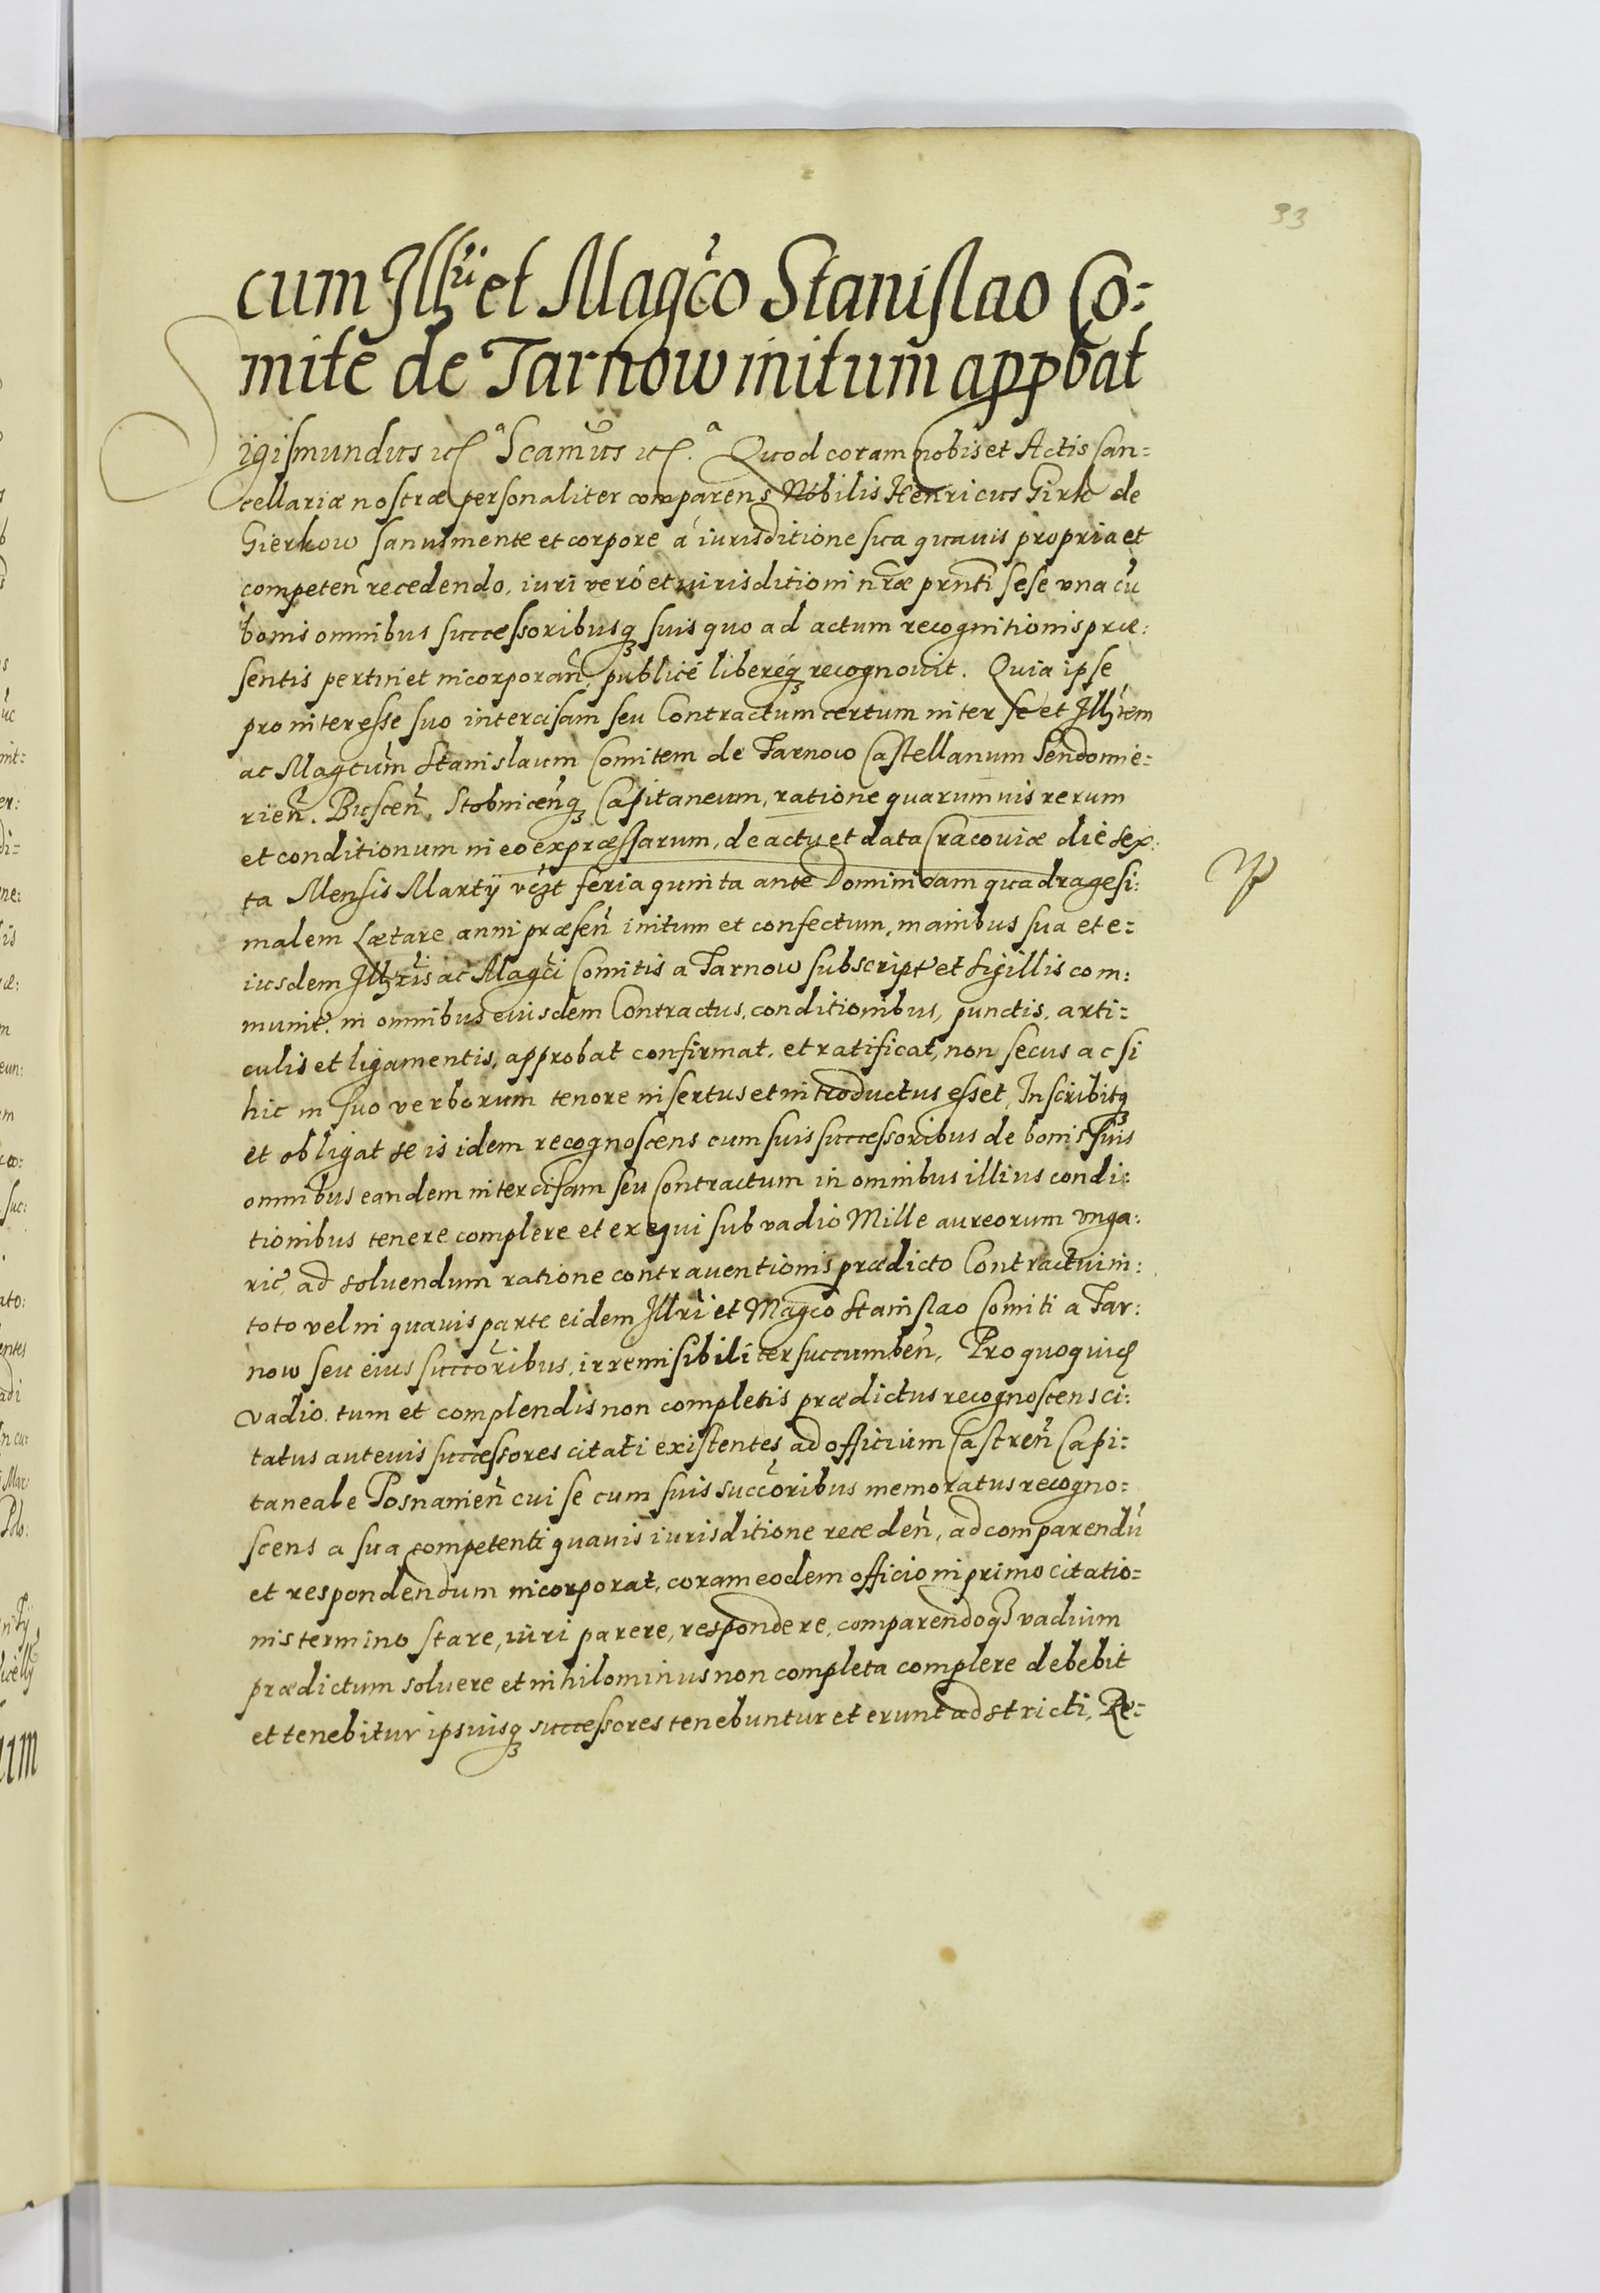 33
cum Illri et Magco Stanislao Co-
mite de Tarnow initum appbat
Sigismundus etc. Scamus etc. Quod coram nobis et Actis Can-
cellariæ nostræ personaliter comparens Nobilis Henricus Girk de
Gierkow sanus mente et corpore à iurisditione sua quauis propria et
competen recedendo, iuri veró et iurisditioni nræ prnti sese vna cu
bonis omnibus successoribusq suis quo ad actum recognitionis præ:
sentis pertinet incorporan, publicé liberéq recognouit. Quia ipse
pro interesse suo intercisam seu Contractum certum inter se et Illrem
ac Magcum Stanislaum Comitem de Tarnow Castellanum Sendomie:
rien. Buscen, Stobnicenq Capitaneum, ratione quarumuis rerum
et conditionum in eo expræssarum, de actu et data Cracouiæ die sex:
ta Mensis Martij vigt feria quinta ante Dominicam quadragesi:
malem Lætare anni præsen initum et confectum, manibus sua et e:
iusdem Illris ac Magci Comitis a Tarnow subscript et sigillis com:
munit, in omnibus eiusdem Contractus, conditionibus, punctis, arti:
culis et ligamentis, approbat confirmat, et ratificat, non secus ac si
hic in suo verborum tenore insertus et introductus esset, Inscribitq
et obligat se is idem recognoscens cum suis successoribus de bonis suis
omnibus eandem intercisam seu Contractum in omnibus illius condi:
tionibus tenere complere et exequi sub vadio Mille aureorum vnga:
ric, ad soluendum ratione contrauentionis prædicto Contractui in:
toto vel in quauis parte eidem Illri et Magco Stanislao Comiti a Tar:
now seu eius succoribus, irremisibiliter succumben, Pro quoquid
vadio, tum et complendis non completis prædictus recognoscens ci:
tatus aut euis successores citati existentes ad officium Castren Capi:
taneale Posnanien cui se cum suis succoribus memoratus recogno:
scens a sua competenti quauis iurisditione receden, ad comparendu
et respondendum incorporat, coram eodem officio in primo citatio:
nis termino stare, iuri parere, respondere, comparendoq vadium
prædictum soluere et nihilominus non completa complere debebit
et tenebitur ipsiusq successores tenebuntur et erunt adstricti, Re: